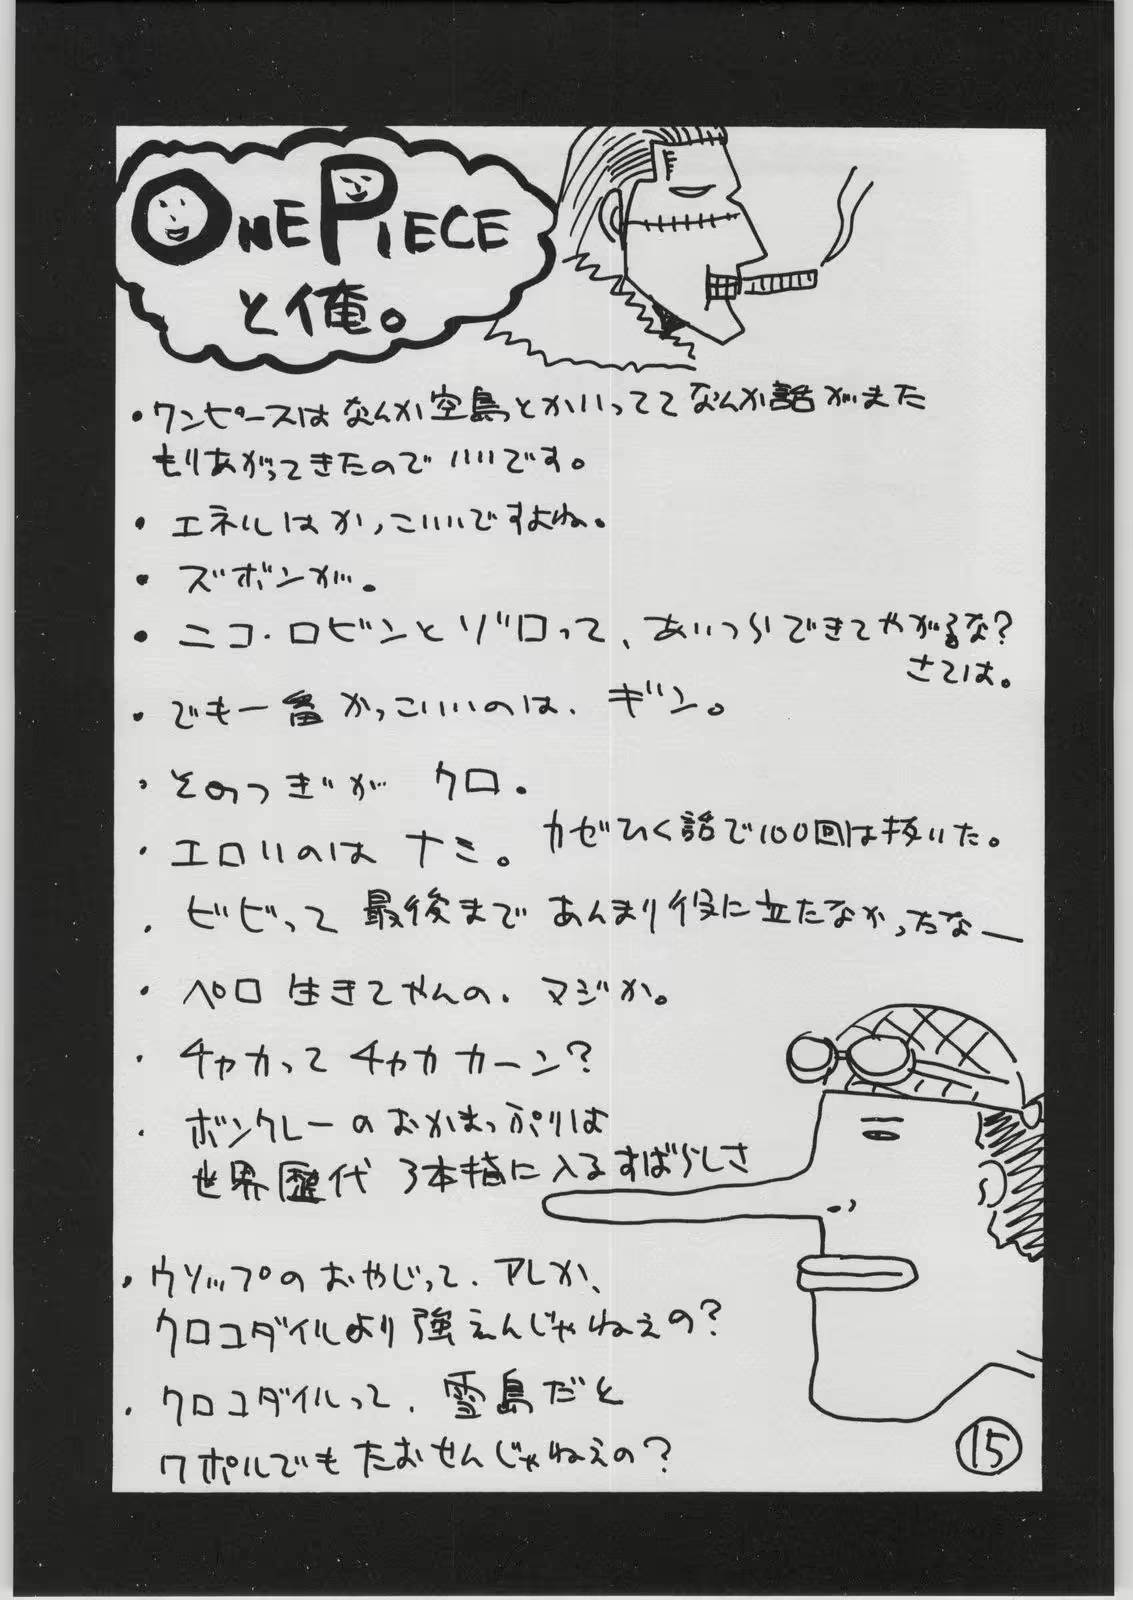 ONE PIECE
と俺。
・ワンピースはなんか空島とかいっててなんか話がまた
もりあがってきたのでいいです。
・エネルはかっこいいですよね。
・ズボンが。
・ニコ・ロビンとゾロって、あいつらできてやがるな?
さては。
・でも一番かっこいいのは、ギン。
・そのつぎが クロ。
・エロいのは ナミ。 カゼひく話で100回は抜いた。
・ビビって 最後まで あんまり役に立たなかったなー
・ペロ 生きてやんの。マジか。
・チャカって チャカ カーン?
・ボンクレーのおかまっぷりは
世界歴代 3本指に入るすばらしさ
・ウソップのおやじって、アレか、
クロコダイルより強えんじゃねえの?
・クロコダイルって、雪島だと
ワポルでもたおせんじゃねえの?
15